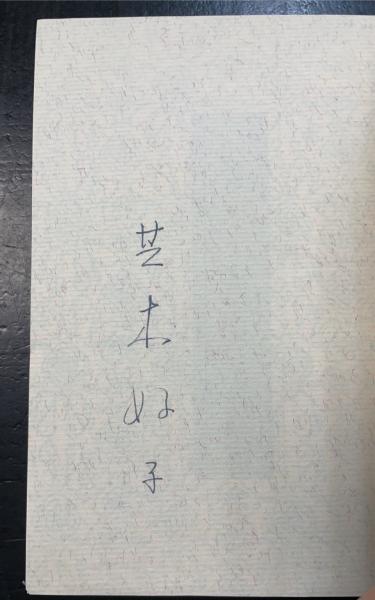 芝木好子